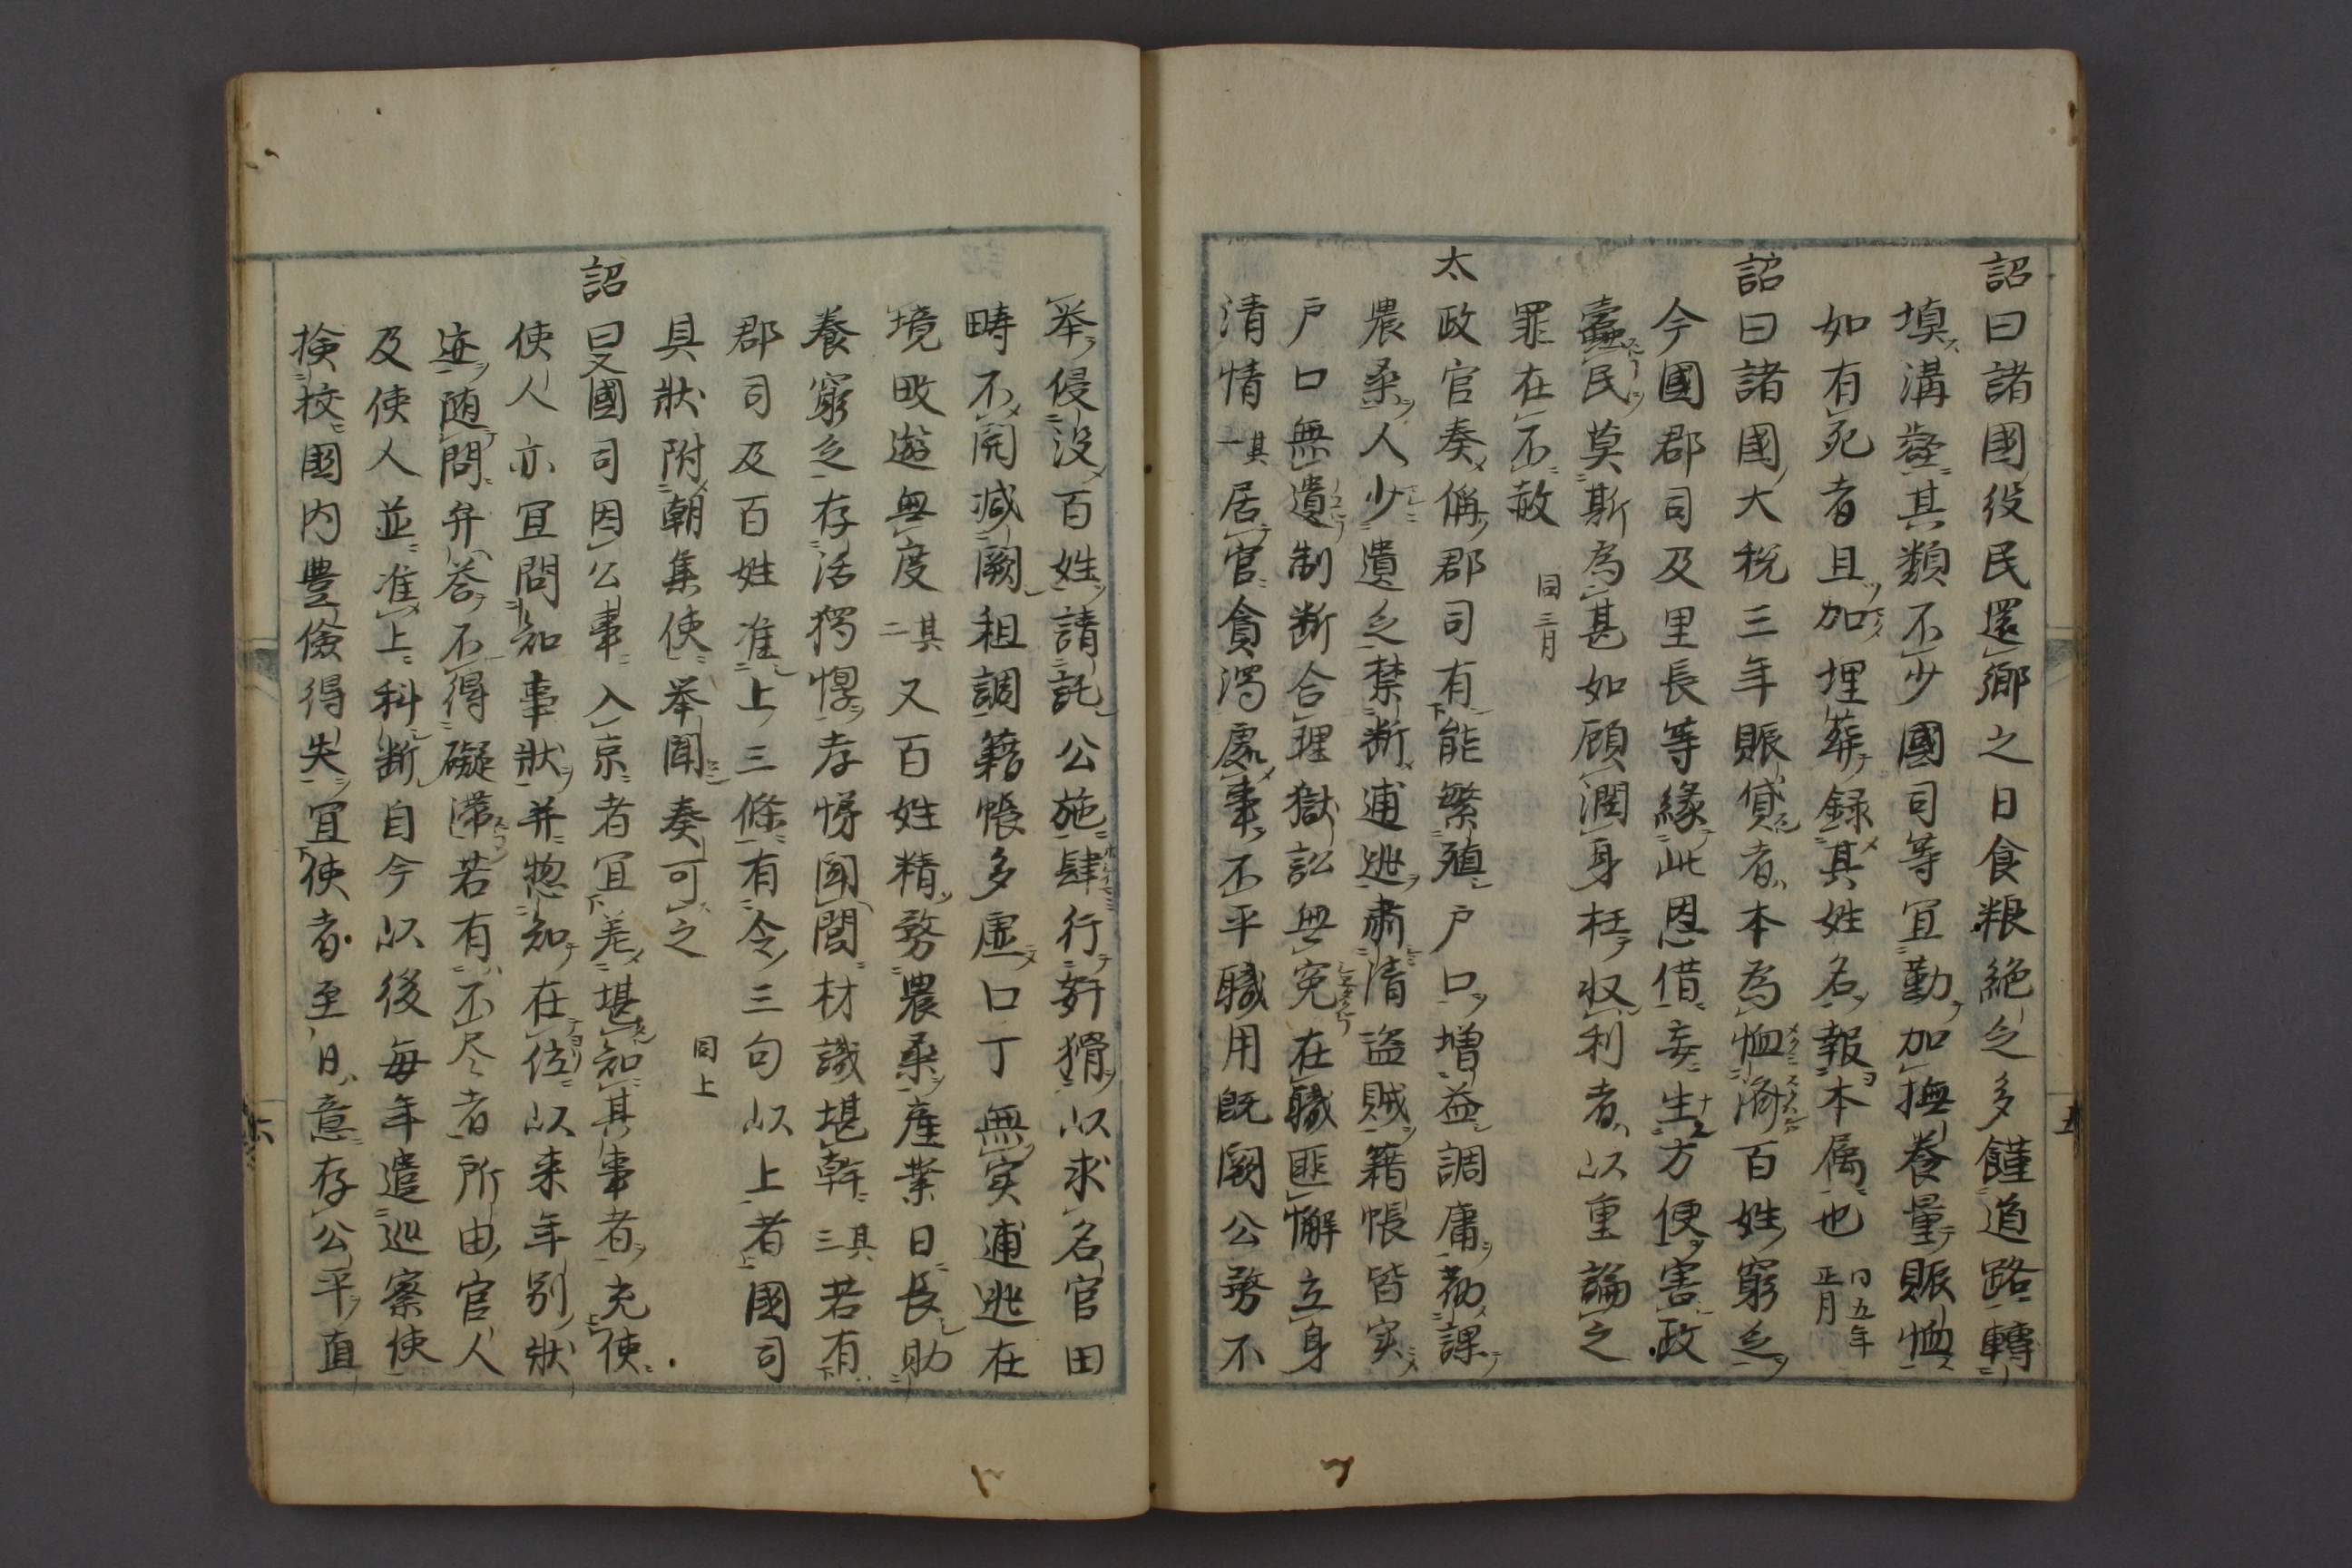 詔曰諸國役民還鄉之日食粮絶乏多饉道路轉
填溝壑其類不少國司等宜勤加撫養量賑恤
如有死者且加埋葬録其姓名報本属也同五年正月
詔曰諸國大税三年賑貸者本為恤濟百姓窮乏
今國郡司及里長等緣此恩借妄生方便害政
蠹民莫斯為甚如顧潤身枉収利者以重論之
罪在不赦 同三月
太政官奏偁郡司有能繁殖戸口增益調庸勸課
農桑人少遺乏禁断逋逃肅清盗賊籍帳皆実
戸口無遺制断合理獄訟無寃在職匪懈立身
清情其一居官貪濁處事不平職用既闕公務不
五
舉侵没百姓請託公施肆行奸猾以求名官田
疇不開減闕租調籍帳多虛口丁無実逋逃在
境畋遊無度其二又百姓精務農桑産業日長助
養窮乏存活獨惸孝悌聞閭材識堪幹其三若有
郡司及百姓准上三條有合三句以上者國司
具狀附朝集使舉聞奏可之 同上
詔曰又國司因公事入京者宜差堪知其事者充使
使人亦宜問知事狀并惣知在位以来年別狀
迹隨問弁答不得礙滞若有不尽者所由官人
及使人並准上科断自今以後毎年遣巡察使
検校國内豊儉得失宜使者至日意存公平直
六